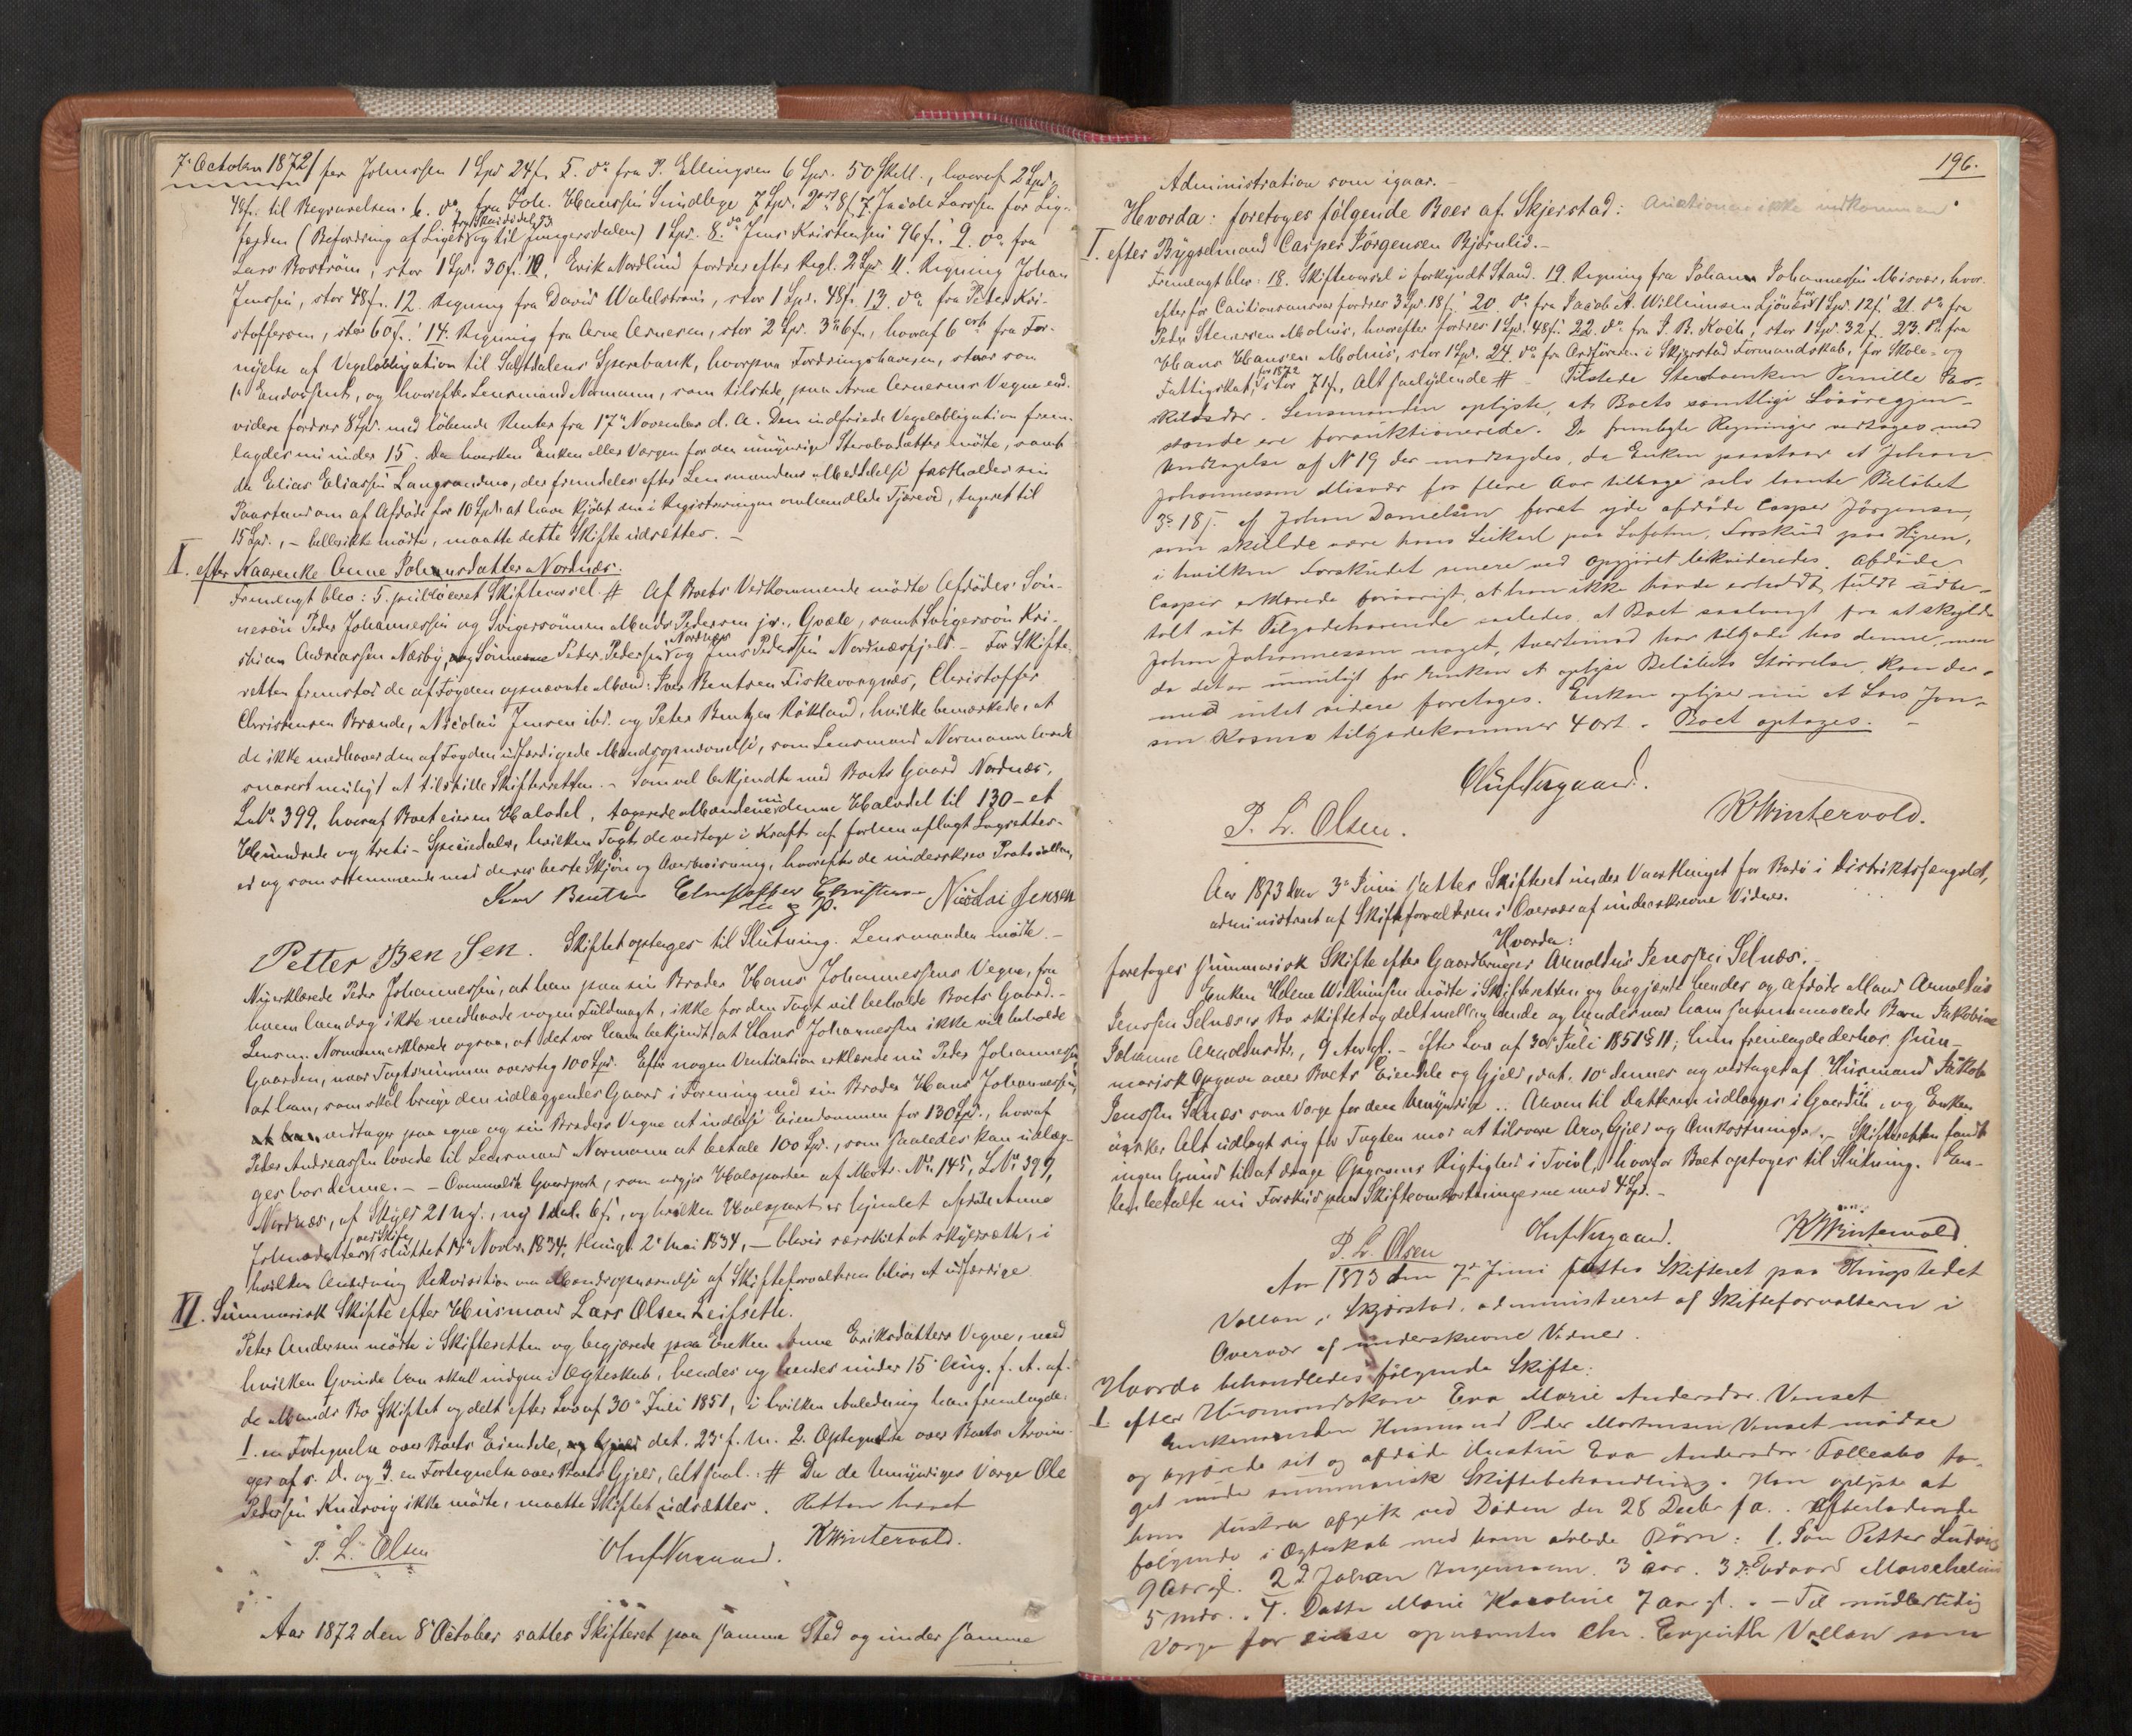 7de October 1872/ fra Johnssen 1 Spd 24 f. 5. do fra P. Ellingsen 6 Spd. 50 Skill., hvoraf 2 Spd.
48 f. til Begravelsen. 6. do fra Joh. Hanssen Sundlege 7 Spd. 2 ort 8 f. 7. Jacob Larssen for Lig-
færden (Befordring af Liget og til Jungersdalen) 1 Spd. 8. do Jens Kristensen 96 f. 9. do fra
Lars Boström, stor 1 Spd. 30 f. 10. Erik Nordlund fordrer efter Regl. 2 Spd. 11. Regning Johan
Jenssen, stor 48 f. 12. Regning fra David Wahlström, stor 1 Spd. 48 f. 13. do fra Peter Kri-
stoffersen, stor 60 f. 14. Regning fra Arne Arnesen, stor 2 Spd. 3 6 f., hvoraf 6 ort fra For-
nyelse af Vexelobligation til Saltdalens Sparebank, hvorpaa Fordringshaveren, staar som
1ste Endossent, og hvorefter Lensmand Normann, som tilstede, paa Arne Arnesens Vegne end-
videre fordrer 8 Spd. med löbende Renter fra 17de November d. A. Den indfriede Vexelobligation frem-
lagdes nu under 15. Da hverken Enken eller Værgen for den umyndige Sterbodatter mödte, samt
da Elias Eliassen Langsandmo, der fremdeles efter Lensmandens Meddelelse fastholder sin
Paastand om af Afdöde for 10 Spd. at have kjöbt den i Registreringen omhandlede Tjæreved, taxeret til
15 Spd., - heller ikke mödte, maatte dette Skifte udsættes. -
II. efter Kaarenke Anne Johnsdatter Nordnæs.
Fremlagt blev: 5. publiceret Skiftevarsel. # Af Boets Vedkommende mödte Afdödes Sön-
nesön Peder Johannessen og Svigersönnen Mads Pedersen jr., Qvæle, samt Svigersön Kri-
stian Andreassen Næsby, og Sönnerne Peter Pedersen Nordnæs og Jens Pedersen Nordnæsfjeld. - For Skifte-
retten fremstod de af Fogden opnævnte Mænd: Iver Bentsen Fiskevaagnæs, Christoffer
Christensen Brænde, Nicolai Jensen ibd. og Peter Bentzen Rökland, hvilke bemærkede, at
de ikke medhaver den af Fogden udfærdigede Mandsopnævnelse, som Lensmand Normann lovede
snarest muligt at tilstille Skifteretten. - Som vel bekjendte med Boets Gaard Nordnæs,
LNo 399, hvoraf Boet eier en Halvdel, taxerede Mændene nu denne Halvdel til 130 - et
Hundrede og treti - Speciedaler, hvilken Taxt de vedtoge i Kraft af forhen aflagt Lagrettes-
ed og som stemmende med deres beste Skjön og Overbevisning, hvorefter de underskrev Protocollen,
Iver Bentsen Christoffer Christensen Nicolai Jensen
m. p. P.
Petter Ben Sen. Skiftet optages til Slutning. Lensmanden mödte. -
Nu erklærede Peder Johannessen, at han paa sin Broder Hans Johannessens Vegne, fra
hvem han dog ikke medhavde nogen Fuldmagt, ikke for den Taxt vil beholde Boets Gaard. -
Lensm. Normann erklærede ogsaa, at det var ham bekjendt, at Hans Johannessen ikke vil beholde
Gaarden, naar Taxtsummen oversteg 100 Spd. Efter nogen Ventilation erklærede nu Peder Johannessen
at han, som skal bruge den udlæggendes Gaard i Forening med sin Broder Hans Johannessen,
vedtager paa egne og sin Broders Vegne at indlöse Eiendommen for 130 Spd., hvoraf
Peder Andreassen lovede til Lensmand Normann at betale 100 Spd., som saaledes kan udlæg-
ges hos denne. - - Ommeldte Gaardpart, som udgjör Halvparten af Matr. No. 145, LNo 399,
Nordnæs, af Skyld 21 mf., ny 1 dal. 6 f., og hvilken Halvpart er hjemlet afdöde Anne
Johnsdatter ved Skifte sluttet 19de Novbr. 1834, thinql. 2de Mai 1834, - bliver særskilt at skyldsætte, i
hvilken Anledning Rekvisition om Mandsopnævnelse af Skifteforvalteren bliver at udfærdige.
VI. Summarisk Skifte efter Husmand Lars Olsen Leifseth.
Peter Andersen mödte i Skifteretten og begjærede paa Enken Anne Eriksdatters Vegne, med
hvilken Qvinde han skal indgaa i Ægteskab, hendes og hendes under 15de Aug. f. A. af-
de Mands Bo skiftet og delt efter Lov af 30de Juli 1851, i hvilken Anledning han fremlagde:
1. en Fortegnelse over Boets Eiendele, dat. 23de f. M. 2. Optegnelse over Boets Arvin-
ger af s. D. og 3. en Fortegnelse over Boets Gjeld, Alt saal.: # Da de Umyndiges Værge Ole
Pedersen Knusvig ikke mödte, maatte Skiftet udsættes. Retten hævet
P. L. Olsen Oluf Vergaard. K Wintervold.
Aar 1872 den 8de October sattes Skifteret paa samme Sted og under samme
196.
Administration som igaar. -
Hvorda: foretoges fölgende Boer af Skjerstad: Auktionen ikke vedkommen
I. efter Bygselmand Casper Jörgensen Bjørnlid. -
Fremlagt blev: 18. Skiftevarsel i forkyndt Stand. 19. Regning fra Johan Johannessen Misvær, hvor-
efter for Cautionsansvar fordres 3 Spd. 18 f. 20. do fra Jacob A. Willumsen Ljönes for 1 Spd. 12 f. 21. do fra
Peder Stenersen Molnis, hvorefter fordres 1 Spd. 48 f. 22. do fra J. B. Koch, stor 1 Spd. 32 f. 23. do fra
Hans Hansen Molnis, stor 1 Spd. 24. do fra Ordföreren i Skjerstad Formandskab, for Skole- og
Fattigskat for 1872, stor 71 f., Alt saalydende # Tilstede Sterboenken Pernille Pas-
kildsdr. Lensmanden oplyste, at Boets samtlige Lösöregjen-
stande ere forauktionerede. De fremlagte Regninger vedtoges med
Undtagelse af N 19 der modsagdes, da Enken paastaar at Johan
Johannessen Misvær for flere Aar tilbage selv laante Beløbet
3 18 f. af Johan Danielsen foret yde afdøde Casper Jörgensen,
som skulde være hans Leikarl paa Lofoten, Forskud paa Hyren,
i hvilken Forskudet senere ved opgjøret likvideredes. Afdøde
Casper erklærede forøvrigt, at han ikke havde erholdt fuldt udbe-
talt sit Tilgodehavende saaledes at Boet saalangt fra at skylde
Johan Johannessen noget, tvertimod har tilgode hos denne, men
da det er umuligt for Enken at oplyse Beløbets Størrelse, kan der-
med intet videre foretages. Enken oplyser nu at Lars Jon-
sen Kosmo tilgodekommer 4 Ort. - Boet optages. -
Oluf Vergaard.
P. L. Olsen. K Wintervold.
Aar 1873 den 3de Juni sattes Skifteret under Vaarthinget for Bodö i Distriktsfængslet,
administreret af Skifteforvalteren i Overvær af underskrevne Vidner.
Hvorda:
foretoges summarisk Skifte efter Gaardbruger Arnoldus Jenssen Selnæs. -
Enken Helene Willumsen mödte i Skifteretten og begjærte hendes og afdöde Mand Arnoldus
Jenssen Selnæs's Bo skiftet og delt mellem hende og hendes med ham sammenavlede Barn Jakobine
Johanne Arnoldusdtr., 9 Aar gl. - efter Lov af 30de Juli 1851 § 11; hun fremlagde derhos sum-
marisk Opgave over Boets Eiendele og Gjeld, dat. 10de dennes og vedtaget af Husmand Jakob
Jenssen Selnæs som Værge for den Umyndige. Arven til Datteren udlægges i Gaarden, og Enken
ønsker Alt udlagt sig for Taxten mod at tilsvare Arv, Gjeld og Omkostninger. - Skifteretten fandt
ingen Grund til at drage Opgavens Rigtighed i Tvivl, hvorfor Boet optoges til Slutning. En-
ken betalte nu Forskud paa Skifteomkostningerne med 4 Spd. -
P. L. Olsen Oluf Vergaard. K Wintervold
Aar 1873 den 7de Juni sattes Skifteret paa Thingstedet
Vollan i Skjerstad, administreret af Skifteforvalteren i
Overvær af underskrevne Vidner.
Hvorda behandledes følgende Skifte:
1. efter Husmandskone Eva Marie Andersdr. Venset
Enkemanden Husmand Peder Mortensen Venset mødte
og begjærede sit og afdøde Hustru Eva Andersdr. Fællesbo ta-
get under summarisk Skiftebehandling. Han oplyste at
hans Hustru afgik ved Døden den 28 Decbr f. a. efterladende
følgende i Ægteskab med ham avlede Børn: 1. Søn Petter Ludvig
9 Aar gl. 2. d Johan Ingemann 3 aar. 3. d Edvard Marselius
5 mdr. 4. Datter Marie Karoline 7 aar gl. - Til midlertidig
Værge for disse opnævntes Chr. Evjenth Vollan som